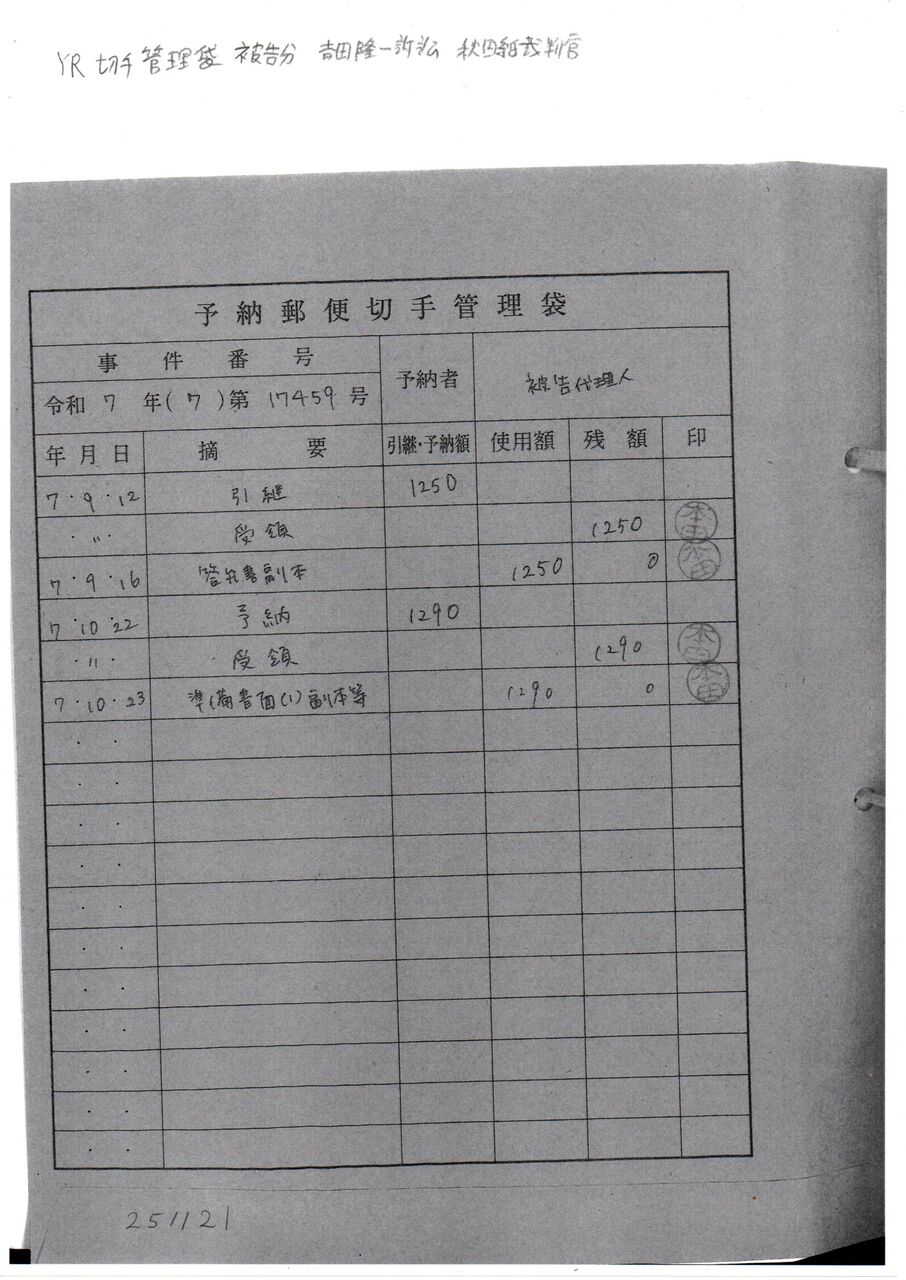 YR 切手管理袋 被告分 吉田隆一訴訟 秋田純裁判官
予納郵便切手管理袋
事件番号
令和 7 年(ワ)第 17459 号
予納者
被告代理人
年月日 摘要 引継・予納額 使用額 残額 印
7・9・12 引継 1250
・〃・ 受領 1250
7・9・16 答弁書副本 1250 0
7・10・22 予納 1290
・〃・ 受領 1290
7・10・23 準備書面(1)副本等 1290 0
251121